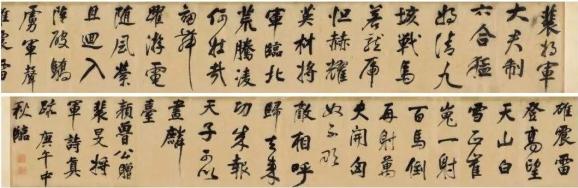 裴將軍
大夫制
六合猛
將清九
垓戰馬
若龍虎
怛赫耀
英材將
軍臨北
荒騰凌
何壯哉
劍舞
躍游電
随風縈
且迴入
陣破驕
虜軍聲
雄震雷
雄震雷
登高望
天山白
雪正崔
嵬一射
百馬倒
再射萬
夫開匈
奴不敢
敵相呼
歸去來
功成報
天子可以
畫麟
臺
顏魯公贈
裴旻將
軍詩真
跡庚午中
秋臨